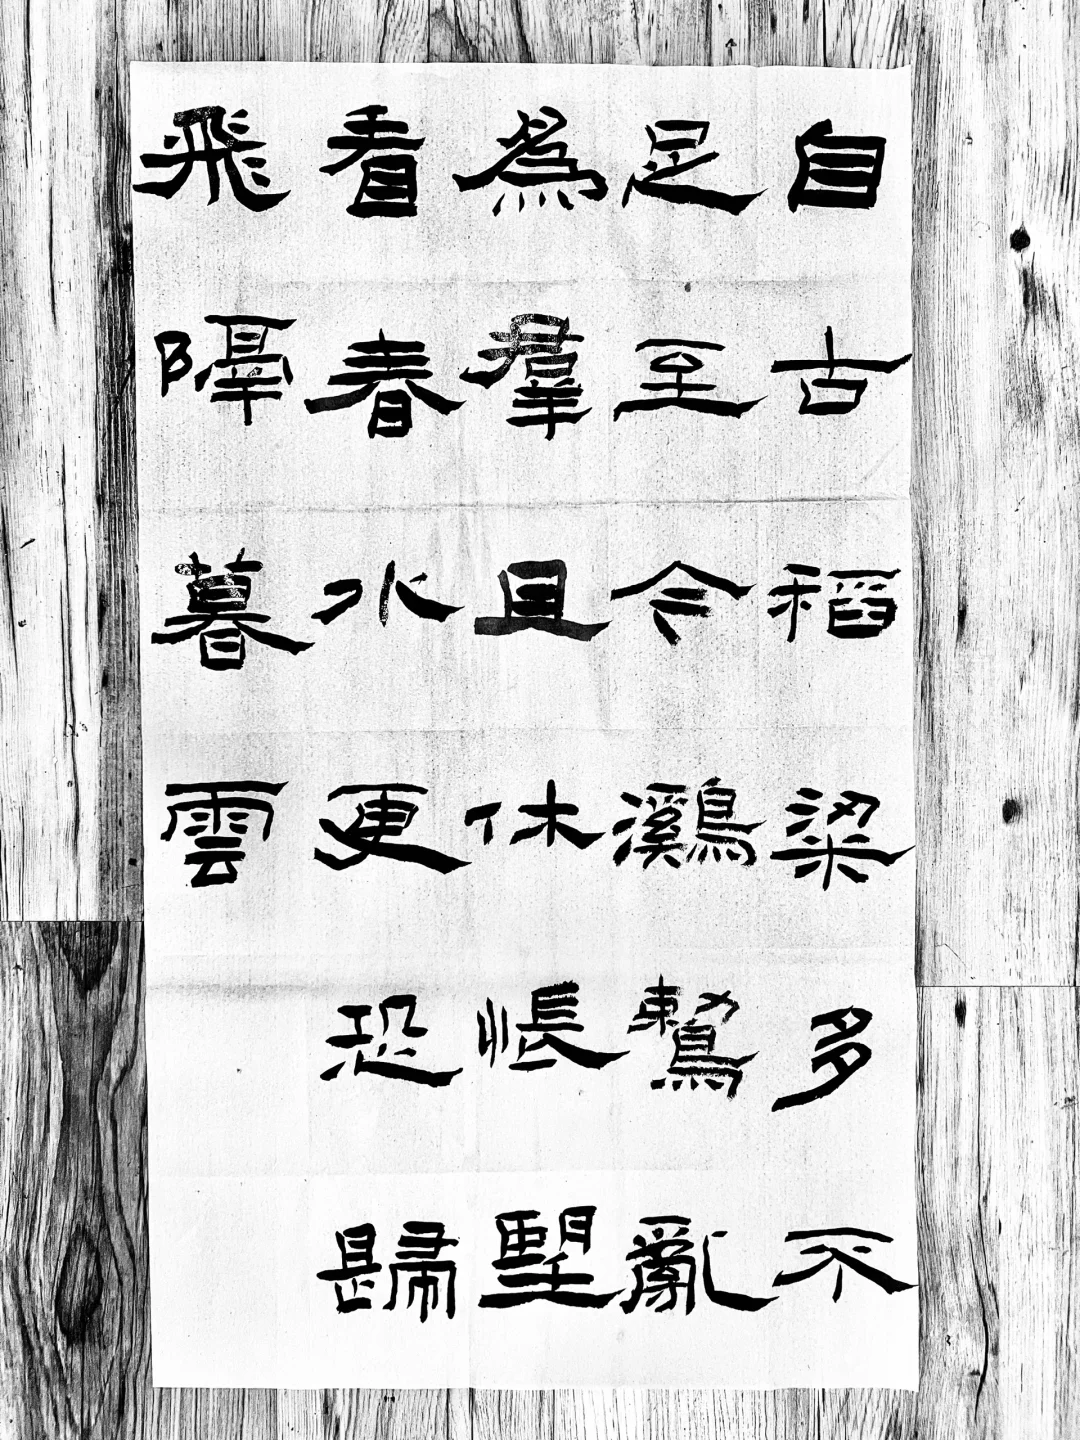 自古稻粱多不
足至今鸂鷘亂
爲羣且休悵朢
看春水更恐歸
飛隔暮雲